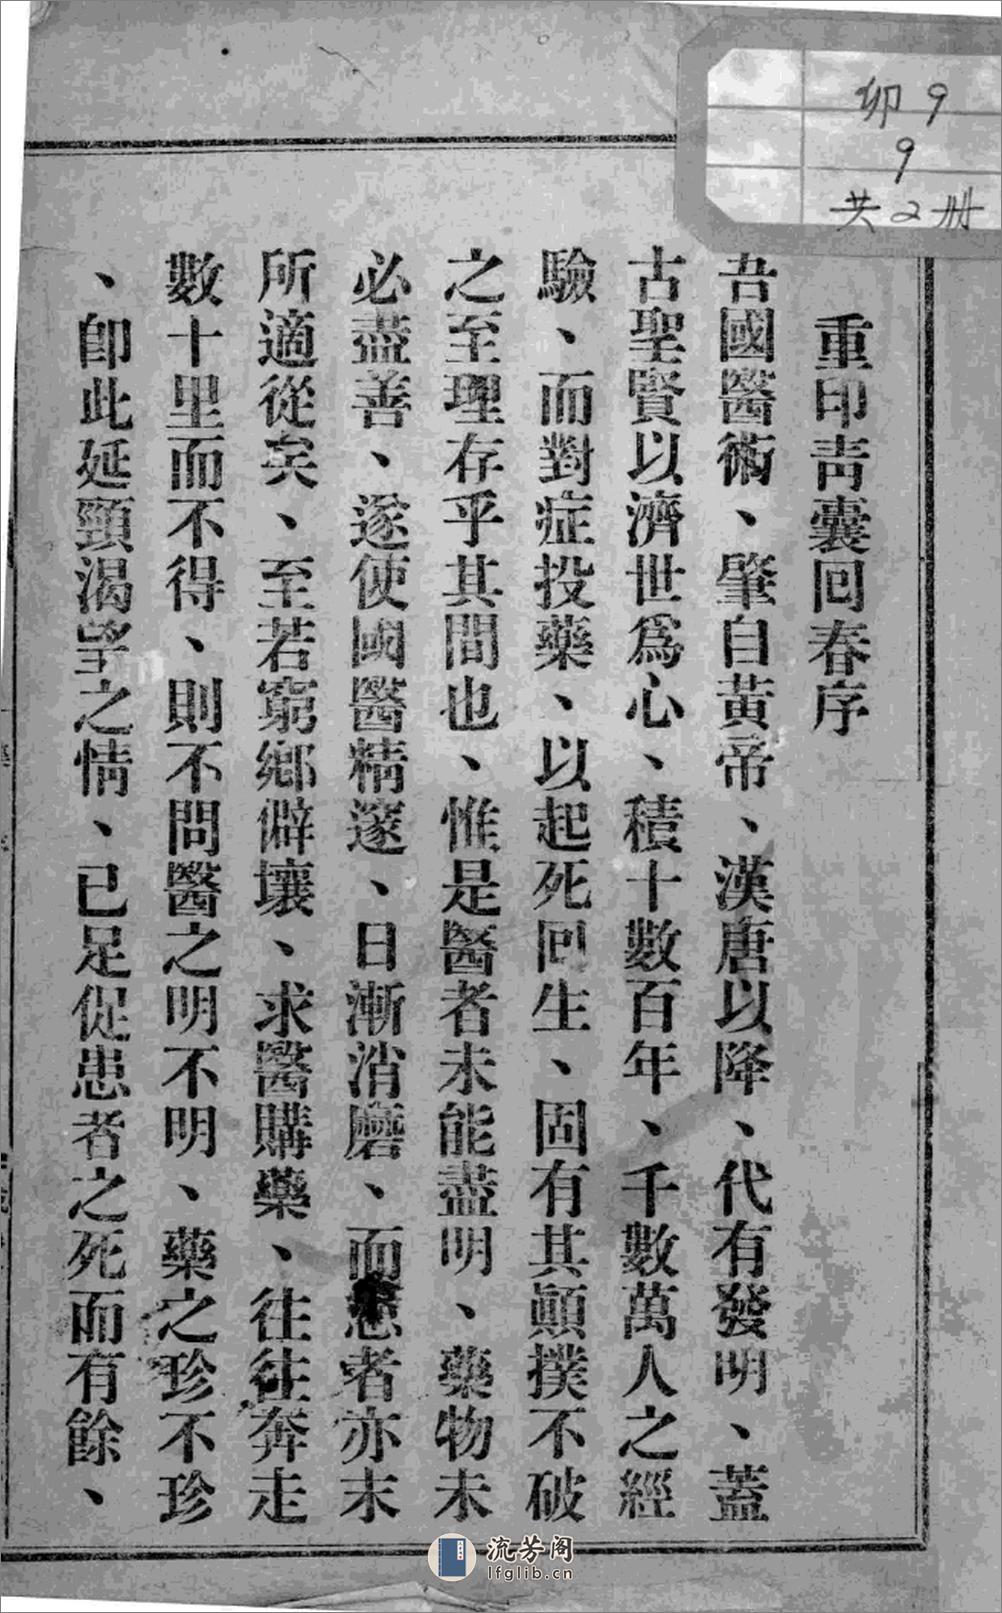 卯9
9
共2册
重印靑囊回春序
吾國醫術、肇自黃帝、漢唐以降、代有發明、蓋
古聖賢以濟世爲心、積十數百年、千數萬人之經
驗、而對症投藥、以起死回生、固有其顚撲不破
之至理存乎其間也、惟是醫者未能盡明、藥物未
必盡善、遂使國醫精邃、日漸消磨、而患者亦末
所適從矣、至若窮鄉僻壤、求醫購藥、往往奔走
數十里而不得、則不問醫之明不明、藥之珍不珍
、卽此延頸渴望之情、已足促患者之死而有餘、
流芳阁
lfglib.cn